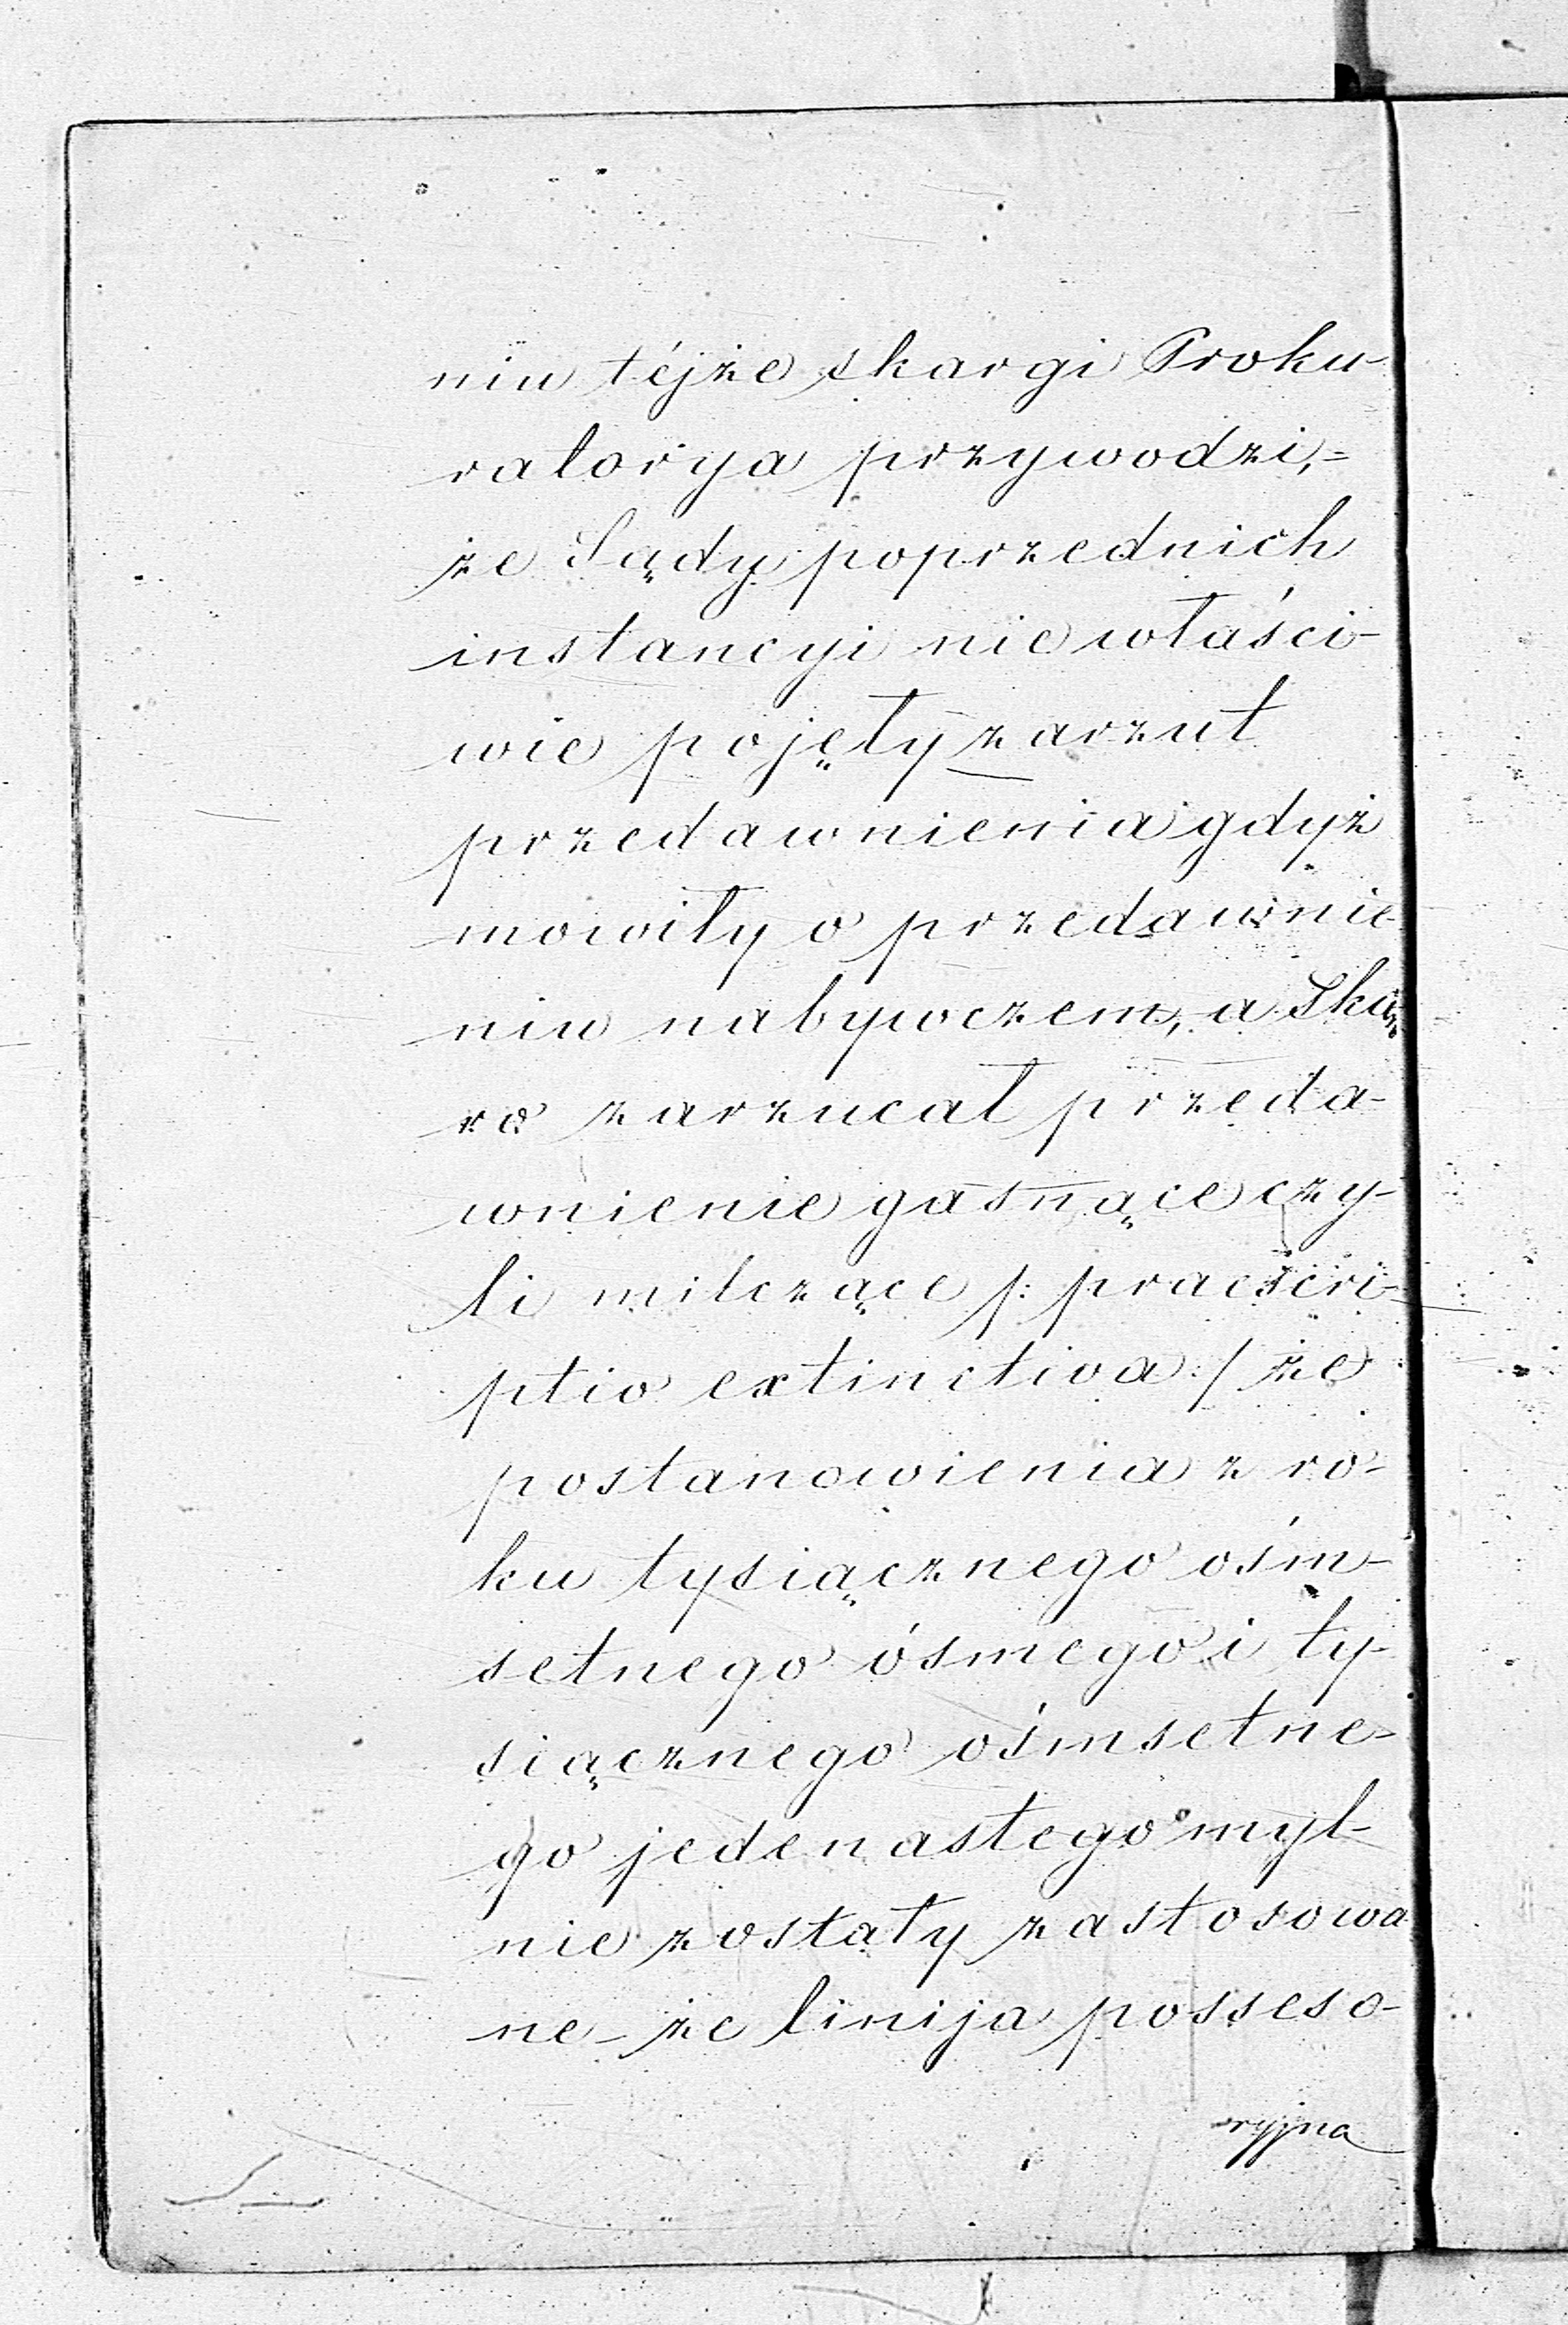 niu téjże skargi Proku-
ratorya przywodzi,=
że Sądy poprzednich
instancyi nie właści-
wie pojęły zarzut
przedawnienia gdyż
mowiły o przedawnie
niu nabywczem, a Ska
rb zarzucał przeda-
wnienie gasnące czy-
li milczące /: praescri-
ptio extinctiva :/ że
postanowienia z ro-
ku tysiącznego ośm-
setnego ósmego i ty-
siącznego ośmsetne-
go jedenastego myl-
nie zostały zastosowa
ne - że linija posseso-
ryjna